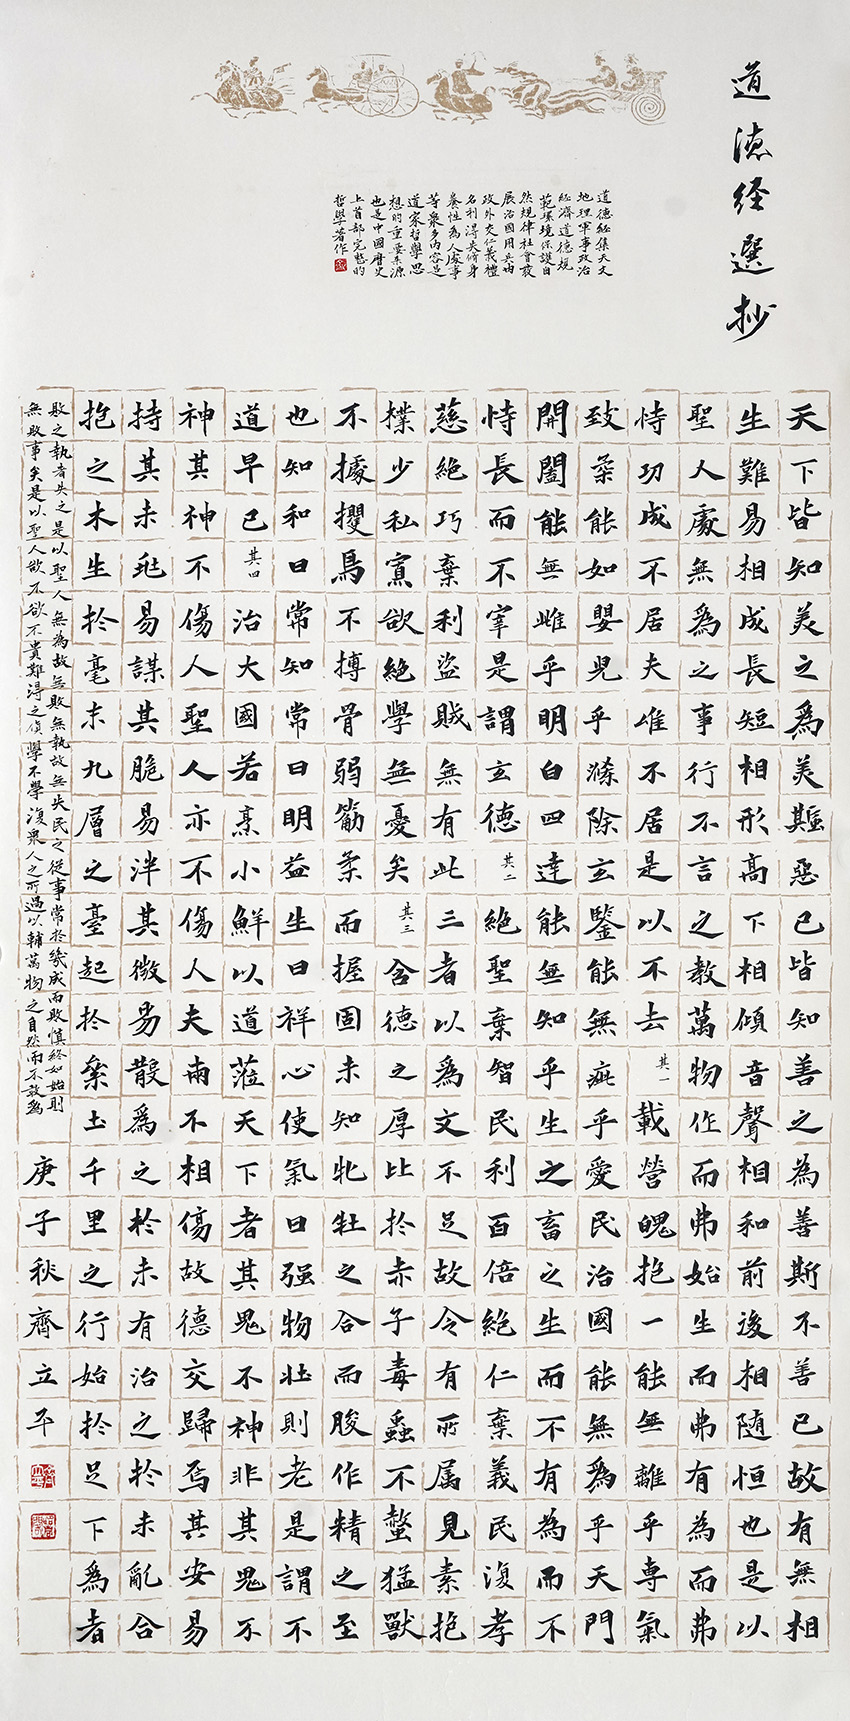 道德经選抄
道德经集天文
地理軍事政治
经濟道德規
範環境保護自
然規律社會發
展治國用兵內
政外交仁義禮
名利得失修身
養性為人處事
等衆多內容是
道家哲學思
想的重要来源
也是中國歷史
上首部完整的
哲學著作
天下皆知美之爲美斯惡已皆知善之為善斯不善已故有無相
生難易相成長短相形高下相傾音聲相和前後相随恒也是以
聖人處無爲之事行不言之教萬物作而弗始生而弗有為而弗
恃功成不居夫唯不居是以不去其一載營魄抱一能無離乎專氣
致柔能如嬰兒乎滌除玄鑒能無疵乎愛民治國能無爲乎天門
開闔能無雌乎明白四達能無知乎生之畜之生而不有為而不
恃長而不宰是謂玄德其二絕聖棄智民利百倍絕仁棄義民復孝
慈絕巧棄利盜賊無有此三者以爲文不足故令有所属見素抱
樸少私寡欲絕學無憂矣其三含德之厚比於赤子毒蟲不螫猛獸
不據攫鳥不搏骨弱筋柔而握固未知牝牡之合而朘作精之至
也知和曰常知常曰明益生曰祥心使氣曰强物壯則老是謂不
道早已其四治大國若烹小鮮以道蒞天下者其鬼不神非其鬼不
神其神不傷人聖人亦不傷人夫兩不相傷故德交歸焉其安易
持其未兆易謀其脆易泮其微易散爲之於未有治之於未亂合
抱之木生於毫末九層之臺起於纍土千里之行始於足下爲者
敗之執者失之是以聖人無為故無敗無執故無失民之從事常於幾成而敗慎終如始則
無敗事矣是以聖人欲不欲不貴難得之貨學不學復衆人之所過以輔萬物之自然而不敢為
庚子秋齊立平